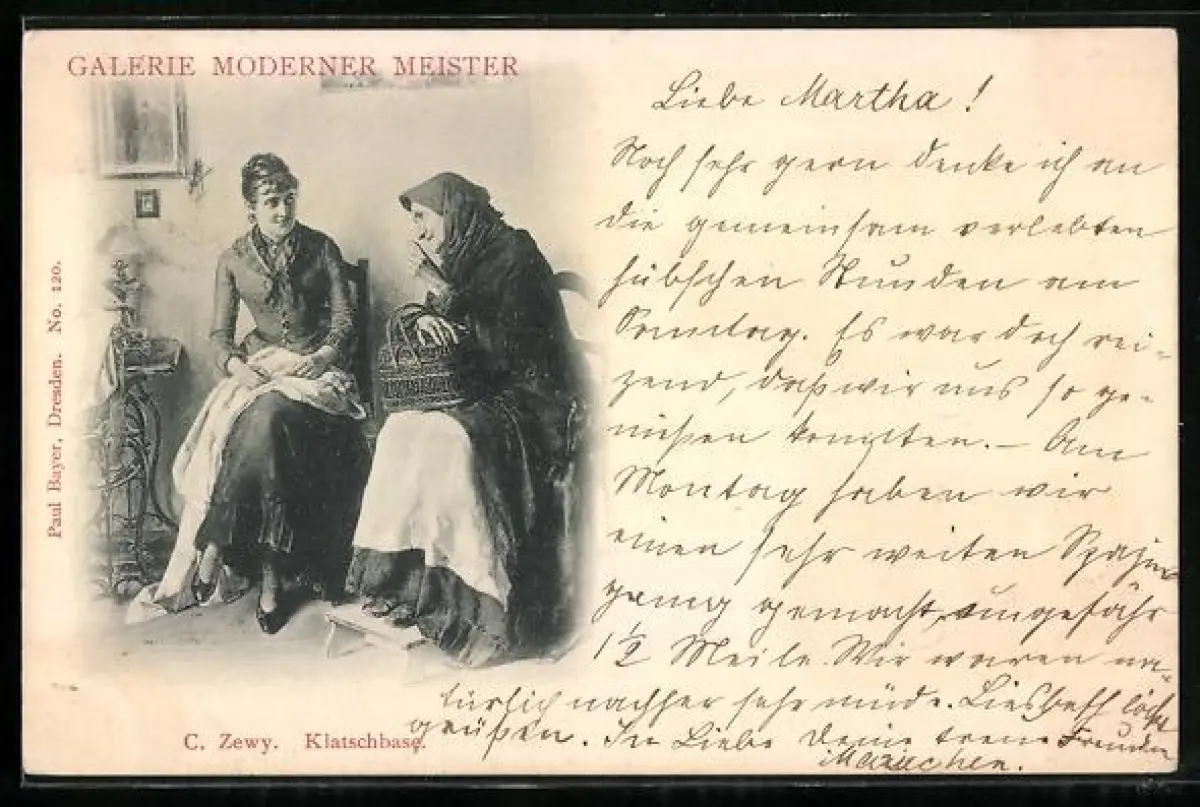 GALERIE MODERNER MEISTER
Paul Bayer, Dresden. No. 120.
C. Zewy. Klatschbase.
Liebe Martha!
Noch sehr gern denke ich an
die gemeinsam verlebten
hübschen Stunden am
Sonntag. Es war doch rei-
zend, daß wir uns so ge-
nießen konnten. – Am
Montag haben wir
einen sehr weiten Spazier
gang gemacht, ungefähr
1½ Meile. Wir waren na-
türlich nachher sehr müde. Liesbeth läßt
grüßen. In Liebe Deine treue Freundin
Mariechen.